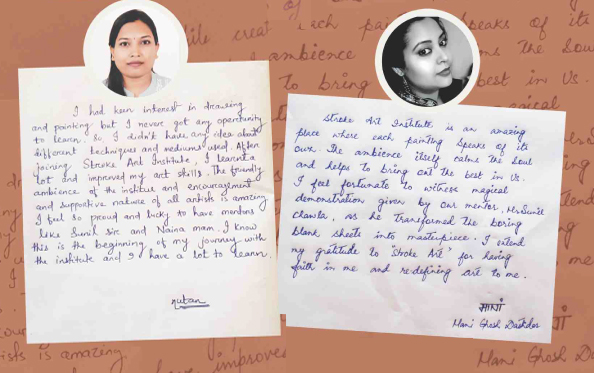 I had keen interest in drawing
and painting but I never got any oppertunity
to learn. so I didn't have any idea about
different techniques and mediums used. After
joining Stroke Art Institute, I learnt a
lot and improved my art skills. The friendly
ambience of the institue and encouragement
and supportive nature of all artists is amazing
I feel so proud and lucky to have mentors
like Sunil Sir and Naina mam. I know
this is the beginning of my journey with
the institute and I have a lot to learn.
nutan
Stroke Art Institute is an amazing
place where each painting speaks of its
own. The ambience itself calms the soul
and helps to bring out the best in us.
I feel fortunate to witness magical
demonstration given by our mentor, Mr Sunil
chawla, as he transformed the boring
blank sheets into masterpiece. I extend
my gratitude to "Stroke Art" for having
faith in me and re-defining art to me.
मानी
Mani Ghosh Dastidar